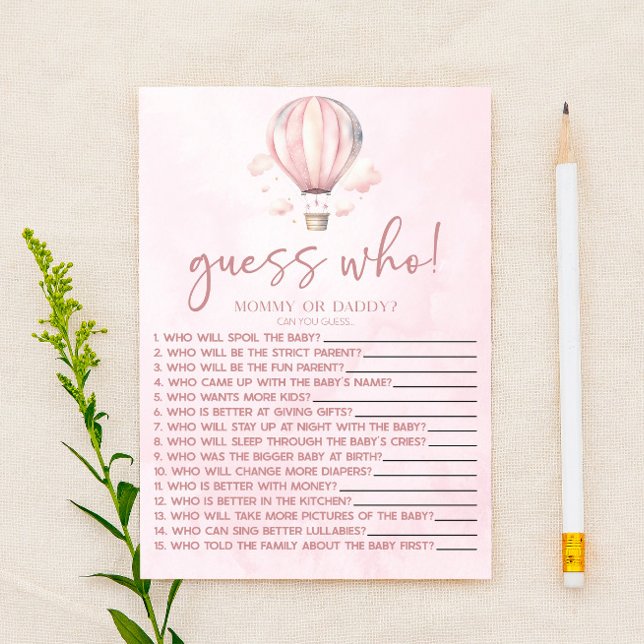 guess who!
MOMMY OR DADDY?
CAN YOU GUESS...
1. WHO WILL SPOIL THE BABY?
2. WHO WILL BE THE STRICT PARENT?
3. WHO WILL BE THE FUN PARENT?
4. WHO CAME UP WITH THE BABY'S NAME?
5. WHO WANTS MORE KIDS?
6. WHO IS BETTER AT GIVING GIFTS?
7. WHO WILL STAY UP AT NIGHT WITH THE BABY?
8. WHO WILL SLEEP THROUGH THE BABY'S CRIES?
9. WHO WAS THE BIGGER BABY AT BIRTH?
10. WHO WILL CHANGE MORE DIAPERS?
11. WHO IS BETTER WITH MONEY?
12. WHO IS BETTER IN THE KITCHEN?
13. WHO WILL TAKE MORE PICTURES OF THE BABY?
14. WHO CAN SING BETTER LULLABIES?
15. WHO TOLD THE FAMILY ABOUT THE BABY FIRST?